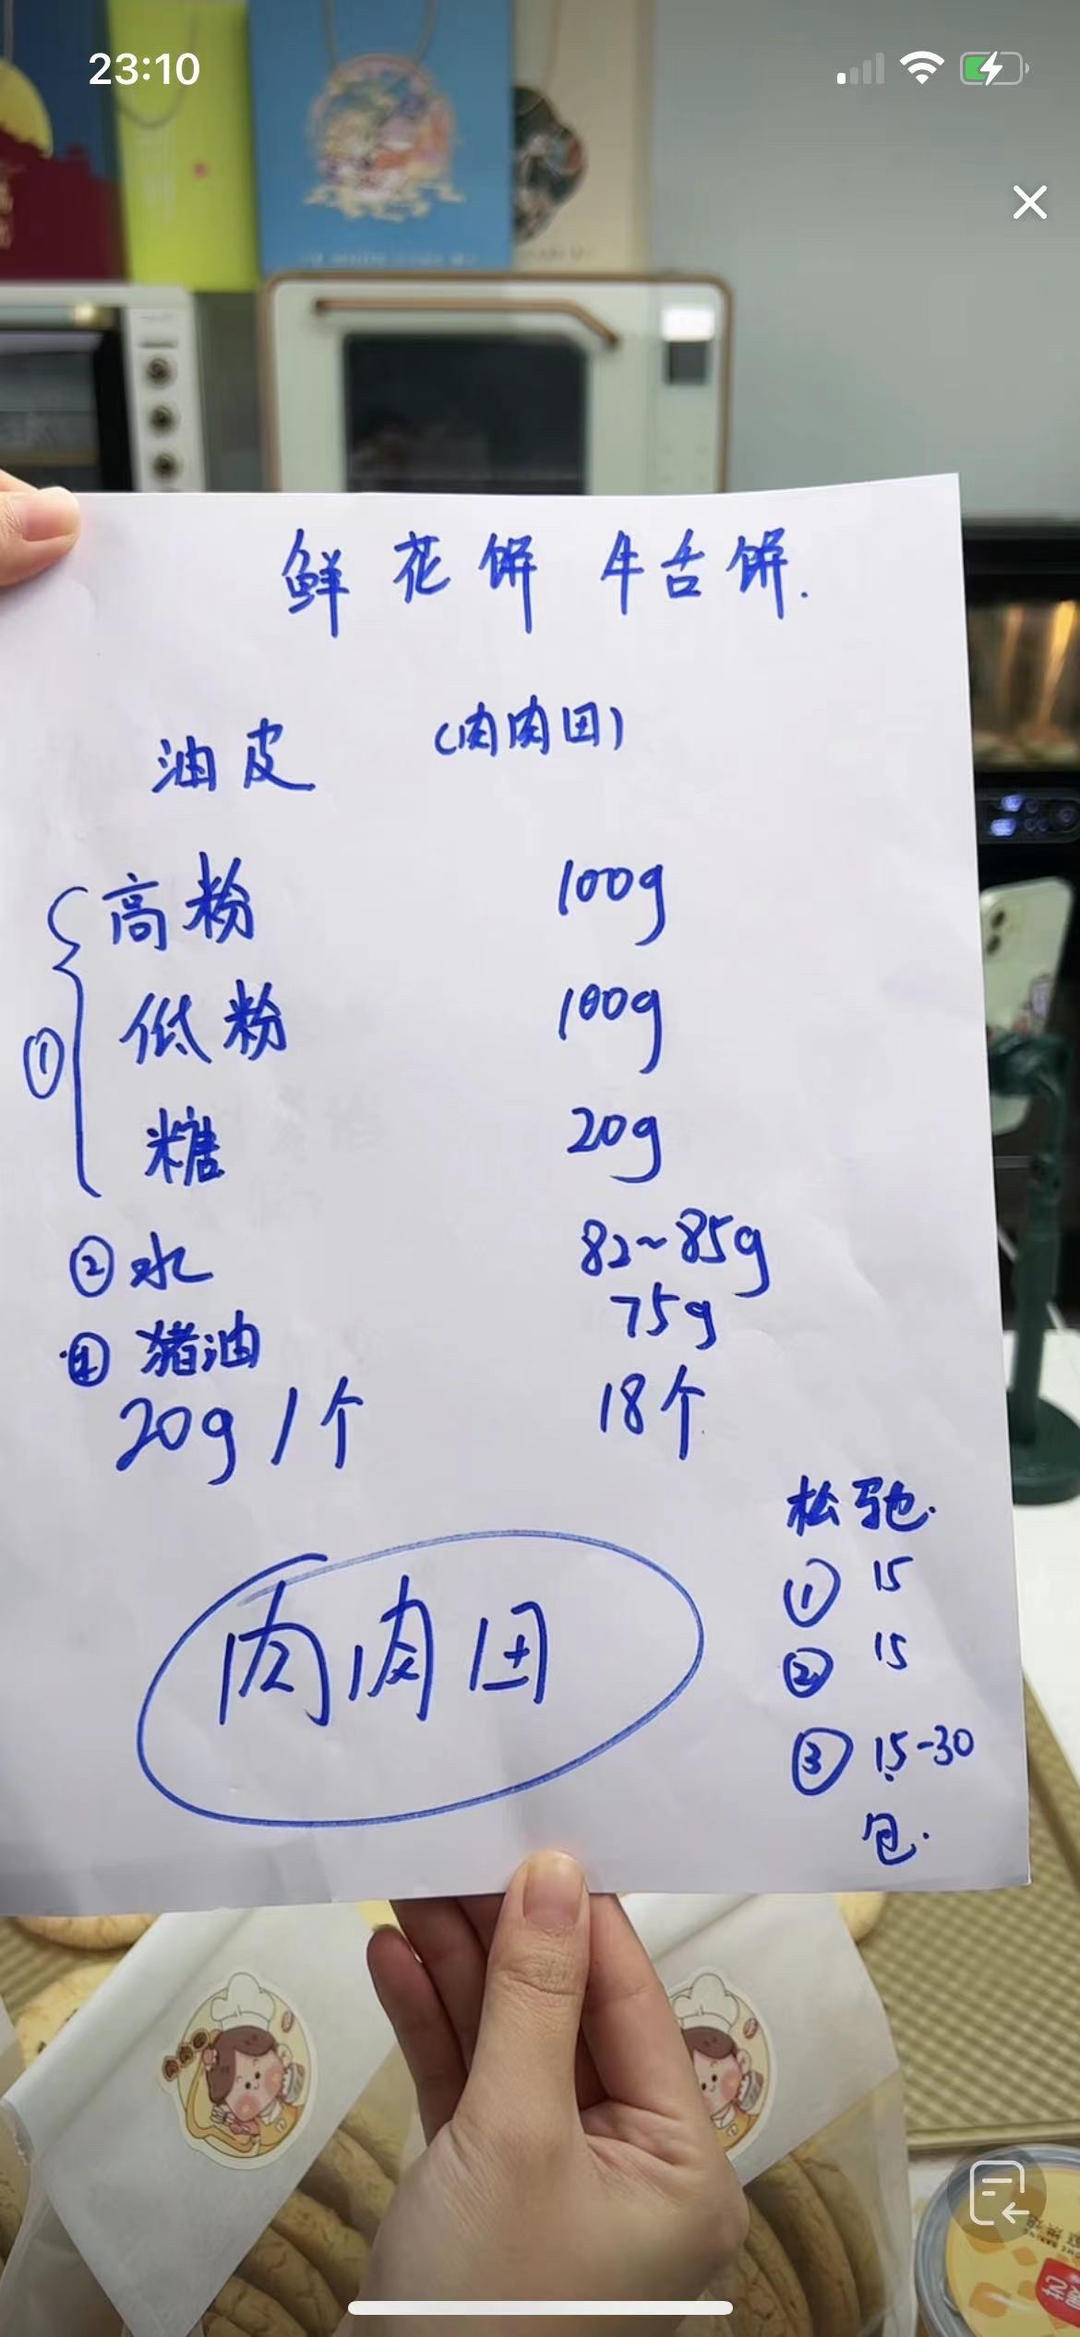 23:10
鲜花饼 牛舌饼.
油皮 (肉肉田)
① 高粉 100g
低粉 100g
糖 20g
② 水 82~85g
④ 猪油 75g
20g/个 18个
肉肉田
松驰.
① 15
② 15
③ 15-30
包.